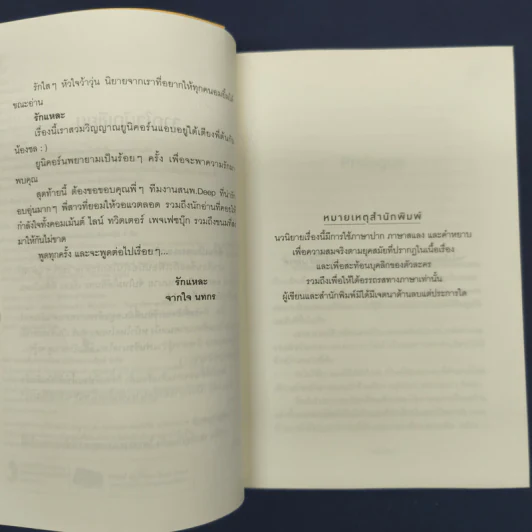 รักใสๆ หัวใจว้าวุ่น นิยายจากเราที่อยากให้ทุกคนอมยิ้มไป
ขณะอ่าน
รักแหละ
เรื่องนี้เราสวมวิญญาณยูนิคอร์นแอบอยู่ใต้เตียงพี่ต้นกับ
น้องชล : )
ยูนิคอร์นพยายามเป็นร้อยๆ ครั้ง เพื่อจะพาความรักมา
พบคุณ
สุดท้ายนี้ ต้องขอขอบคุณพี่ๆ ทีมงานสนพ.Deep ที่น่ารัก
อบอุ่นมากๆ พี่สาวที่ยอมให้วอแวตลอด รวมถึงนักอ่านที่คอย
กำลังใจทั้งคอมเม้นต์ ไลน์ ทวิตเตอร์ เพจเฟซบุ๊ก รวมถึงขนม
มาให้กันไม่ขาด
พูดทุกครั้ง และจะพูดต่อไปเรื่อยๆ...
รักแหละ
จากใจ นทกร
หมายเหตุสำนักพิมพ์
นวนิยายเรื่องนี้มีการใช้ภาษาปาก ภาษาสแลง และคำหยาบ
เพื่อความสมจริงตามยุคสมัยที่ปรากฏในเนื้อเรื่อง
และเพื่อสะท้อนบุคลิกของตัวละคร
รวมถึงเพื่อให้ได้อรรถรสทางภาษาเท่านั้น
ผู้เขียนและสำนักพิมพ์มิได้มีเจตนาด้านลบแต่ประการใด